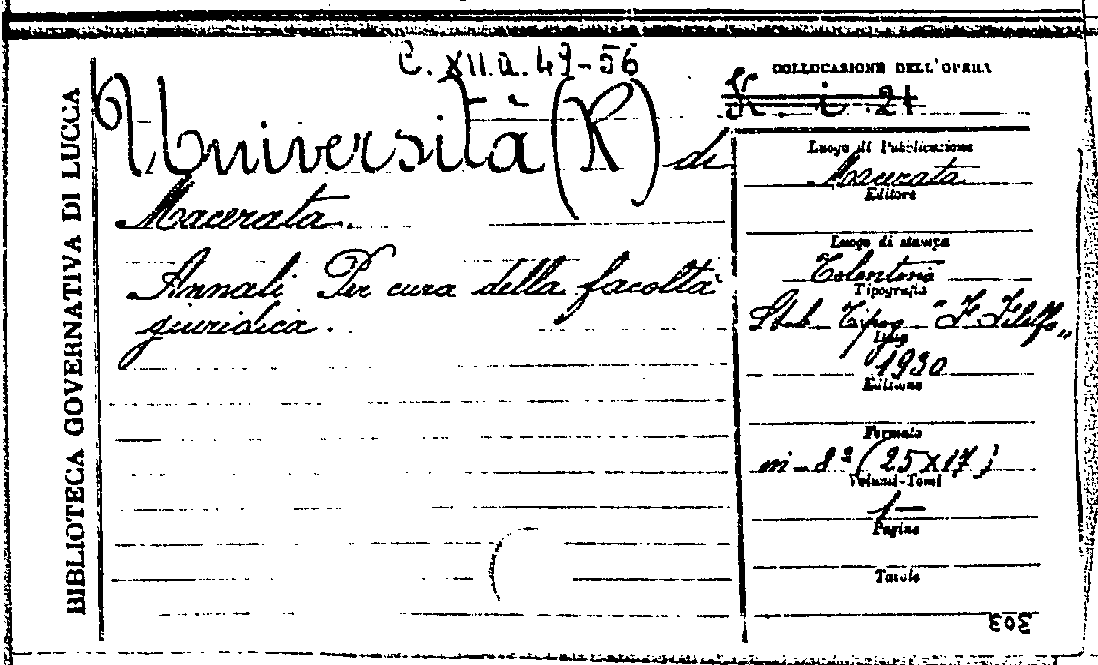 BIBLIOTECA GOVERNATIVA DI LUCCA
C. XII.a. 49-56
Università (R) di
Macerata.
Annali Per cura della facoltà
giuridica.
COLLOCAZIONE DELL'OPERA
i. 21
Luogo di Pubblicazione
Macerata
Editore
Luogo di stampa
Tolentino
Tipografia
Stab. Tipog. "F. Filelfo„
1930
Edizione
Formato
in-8º (25x17)
Volumi-Tomi
1
Pagine
Tavole
303